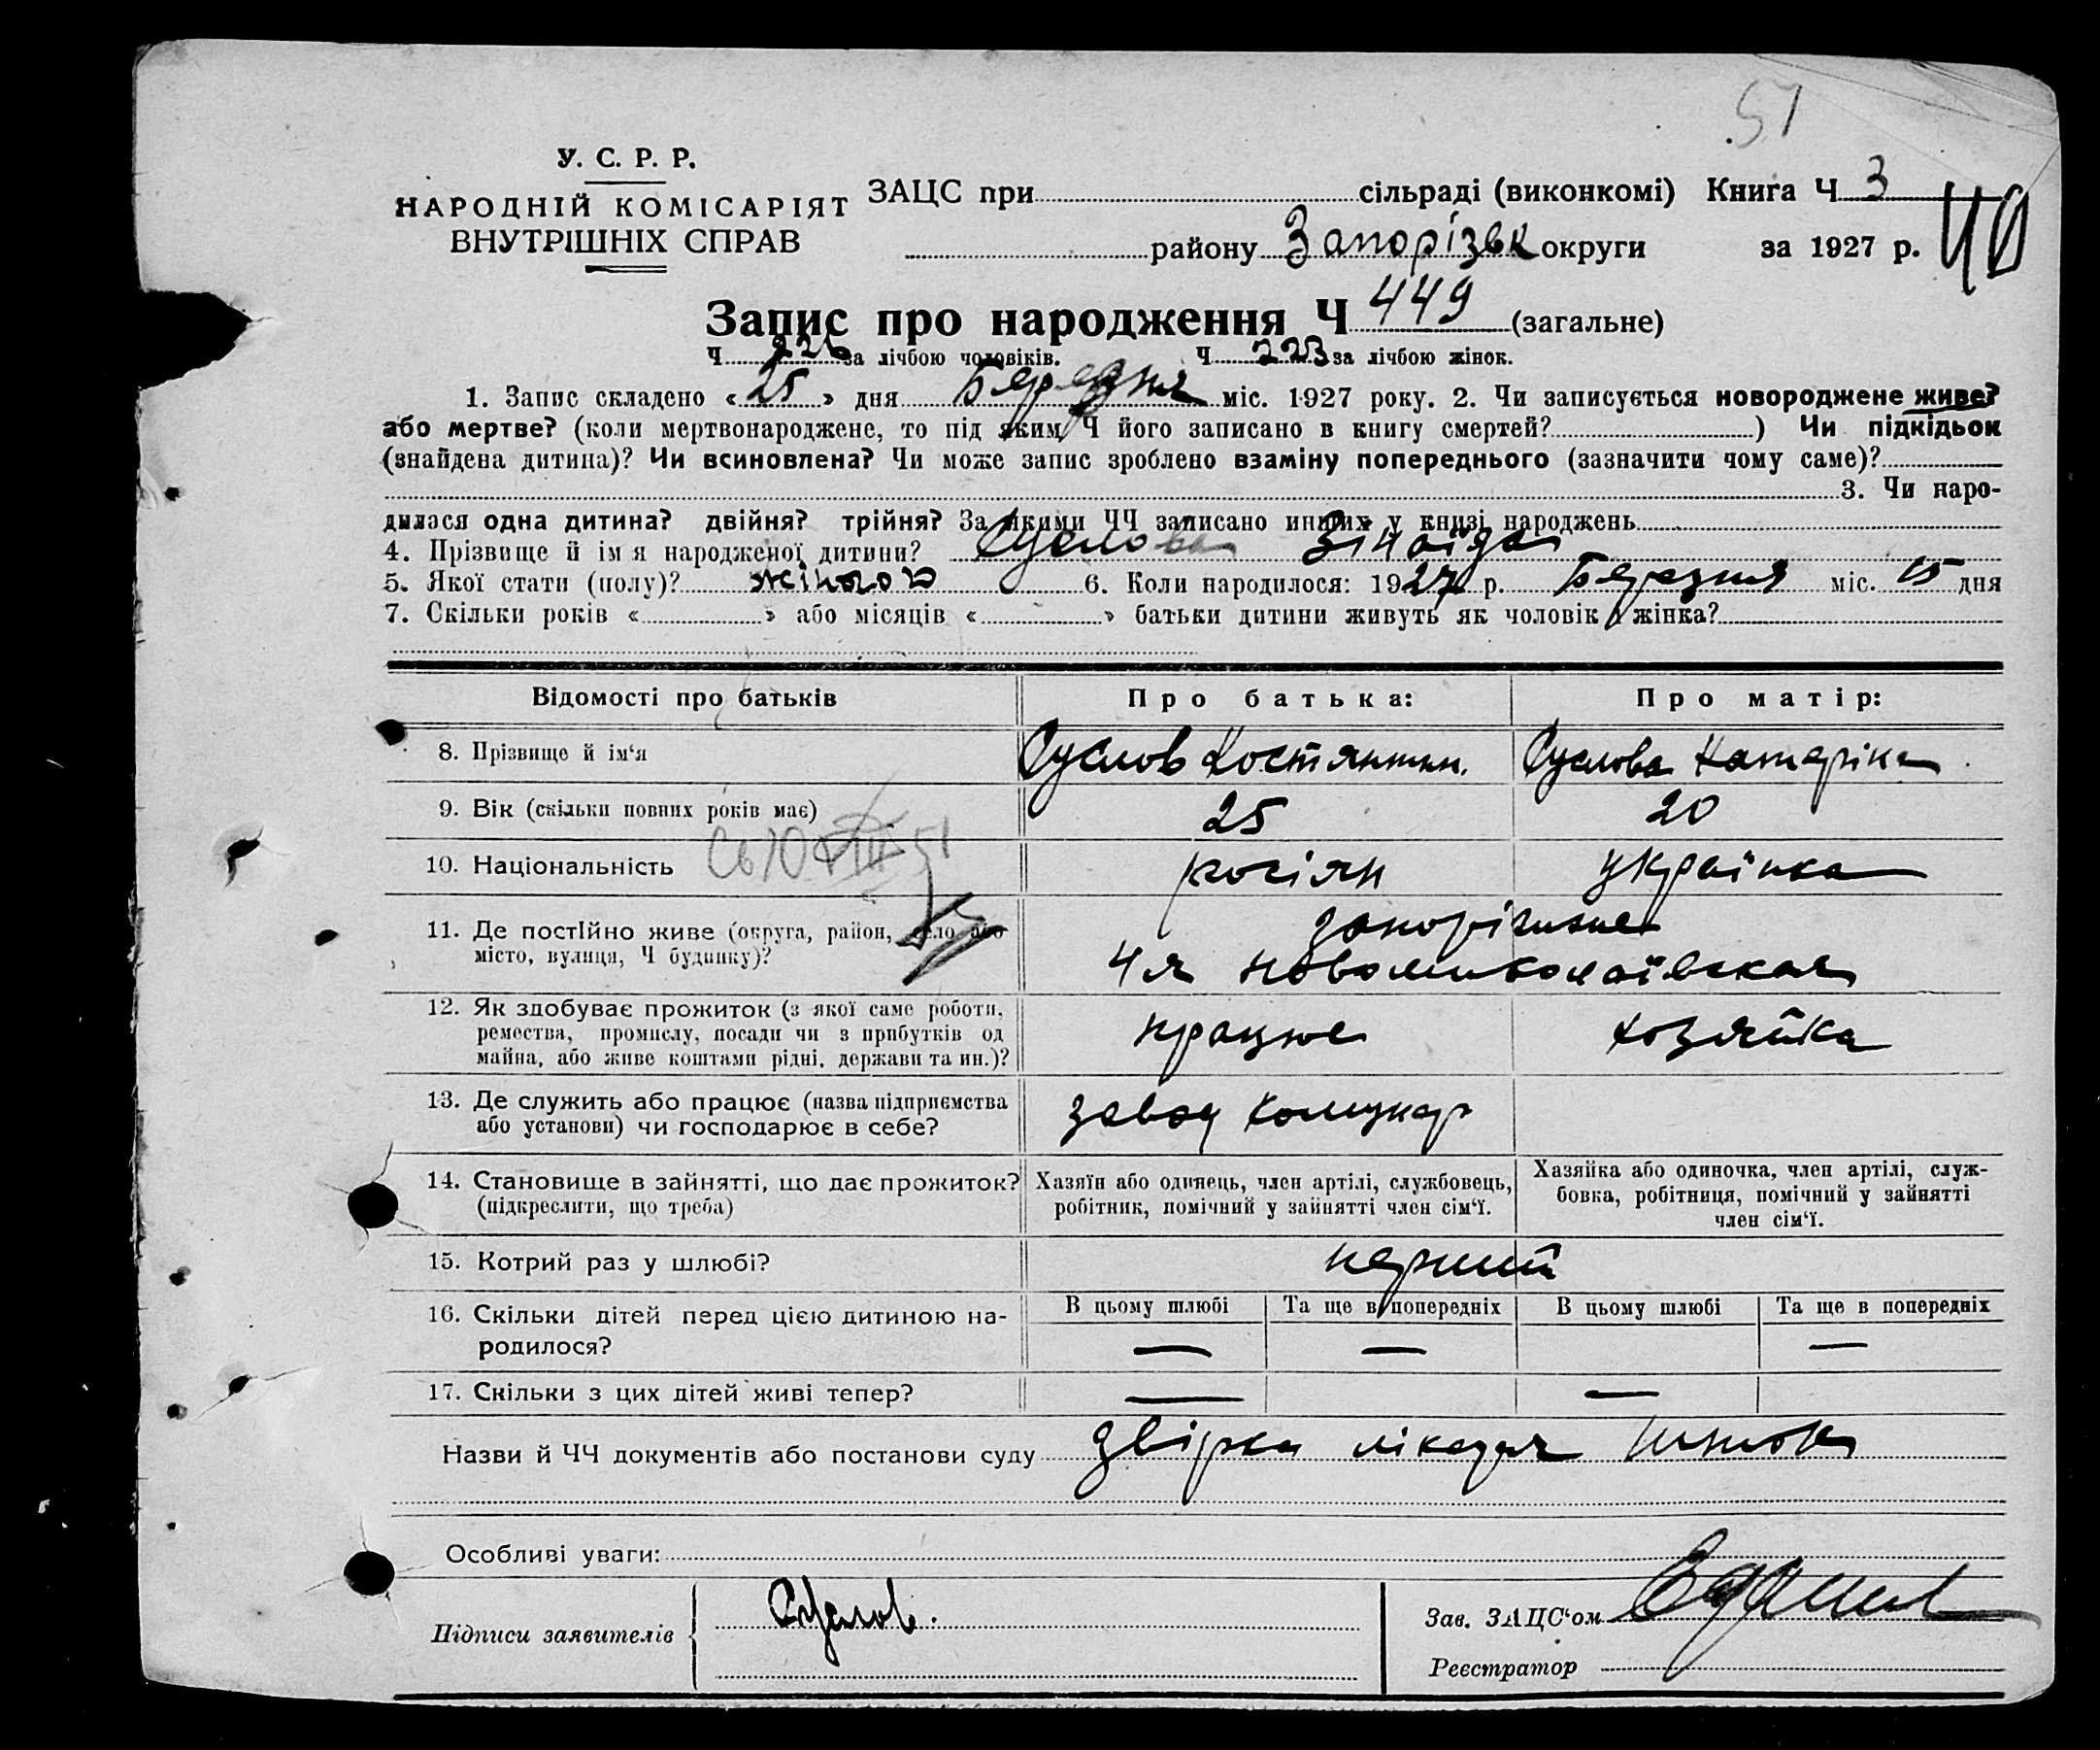 51
У. С. Р. Р.
НАРОДНІЙ КОМІСАРІЯТ
ВНУТРІШНІХ СПРАВ
ЗАЦС при сільраді (виконкомі) Книга Ч 3
району Запорізьк округи за 1927 р. 40
Запис про народження Ч 449 (загальне)
Ч 226 за лічбою чоловіків. Ч 223 за лічбою жінок.
1. Запис складено «25» дня Березня міс. 1927 року. 2. Чи записується новороджене живе?
або мертве? (коли мертвонароджене, то під яким Ч його записано в книгу смертей? ) Чи підкідьок
(знайдена дитина)? Чи всиновлена? Чи може запис зроблено взаміну попереднього (зазначити чому саме)?
3. Чи наро-
дилася одна дитина? двійня? трійня? За якими ЧЧ записано инших у книзі народжень
4. Прізвище й ім я народженої дитини? Суслова Зінаїда
5. Якої стати (полу)? жіного 6. Коли народилося: 1927 р. Березня міс. 15 дня
7. Скільки років « » або місяців « » батьки дитини живуть як чоловік і жінка?
Відомості про батьків Про батька: Про матір:
8. Прізвище й ім‘я Суслов Костянтин. Суслова Катеріна
9. Вік (скільки повних років має) 25 20
10. Національність росіян українка
11. Де постійно живе (округа, район, село або запоріжжє
місто, вулиця, Ч будинку)? 4я новомиколаївская
12. Як здобуває прожиток (з якої саме роботи,
ремества, промислу, посади чи з прибутків од працює хозяйка
майна, або живе коштами рідні, держави та ин.)?
13. Де служить або працює (назва підприємства
або установи) чи господарює в себе? завод Комунар
14. Становище в зайнятті, що дає прожиток? Хазяїн або одинець, член артілі, службовець, Хазяйка або одиночка, член артілі, служ-
(підкреслити, що треба) робітник, помічний у зайнятті член сім‘ї. бовка, робітниця, помічний у зайнятті
член сім‘ї.
15. Котрий раз у шлюбі? перший
16. Скільки дітей перед цією дитиною на- В цьому шлюбі Та ще в попередніх В цьому шлюбі Та ще в попередніх
родилося? — — —
17. Скільки з цих дітей живі тепер? — —
Назви й ЧЧ документів або постанови суду звірка лікаря
Особливі уваги:
Підписи заявителів Суслов. Зав. ЗАЦС‘ом
Реєстратор